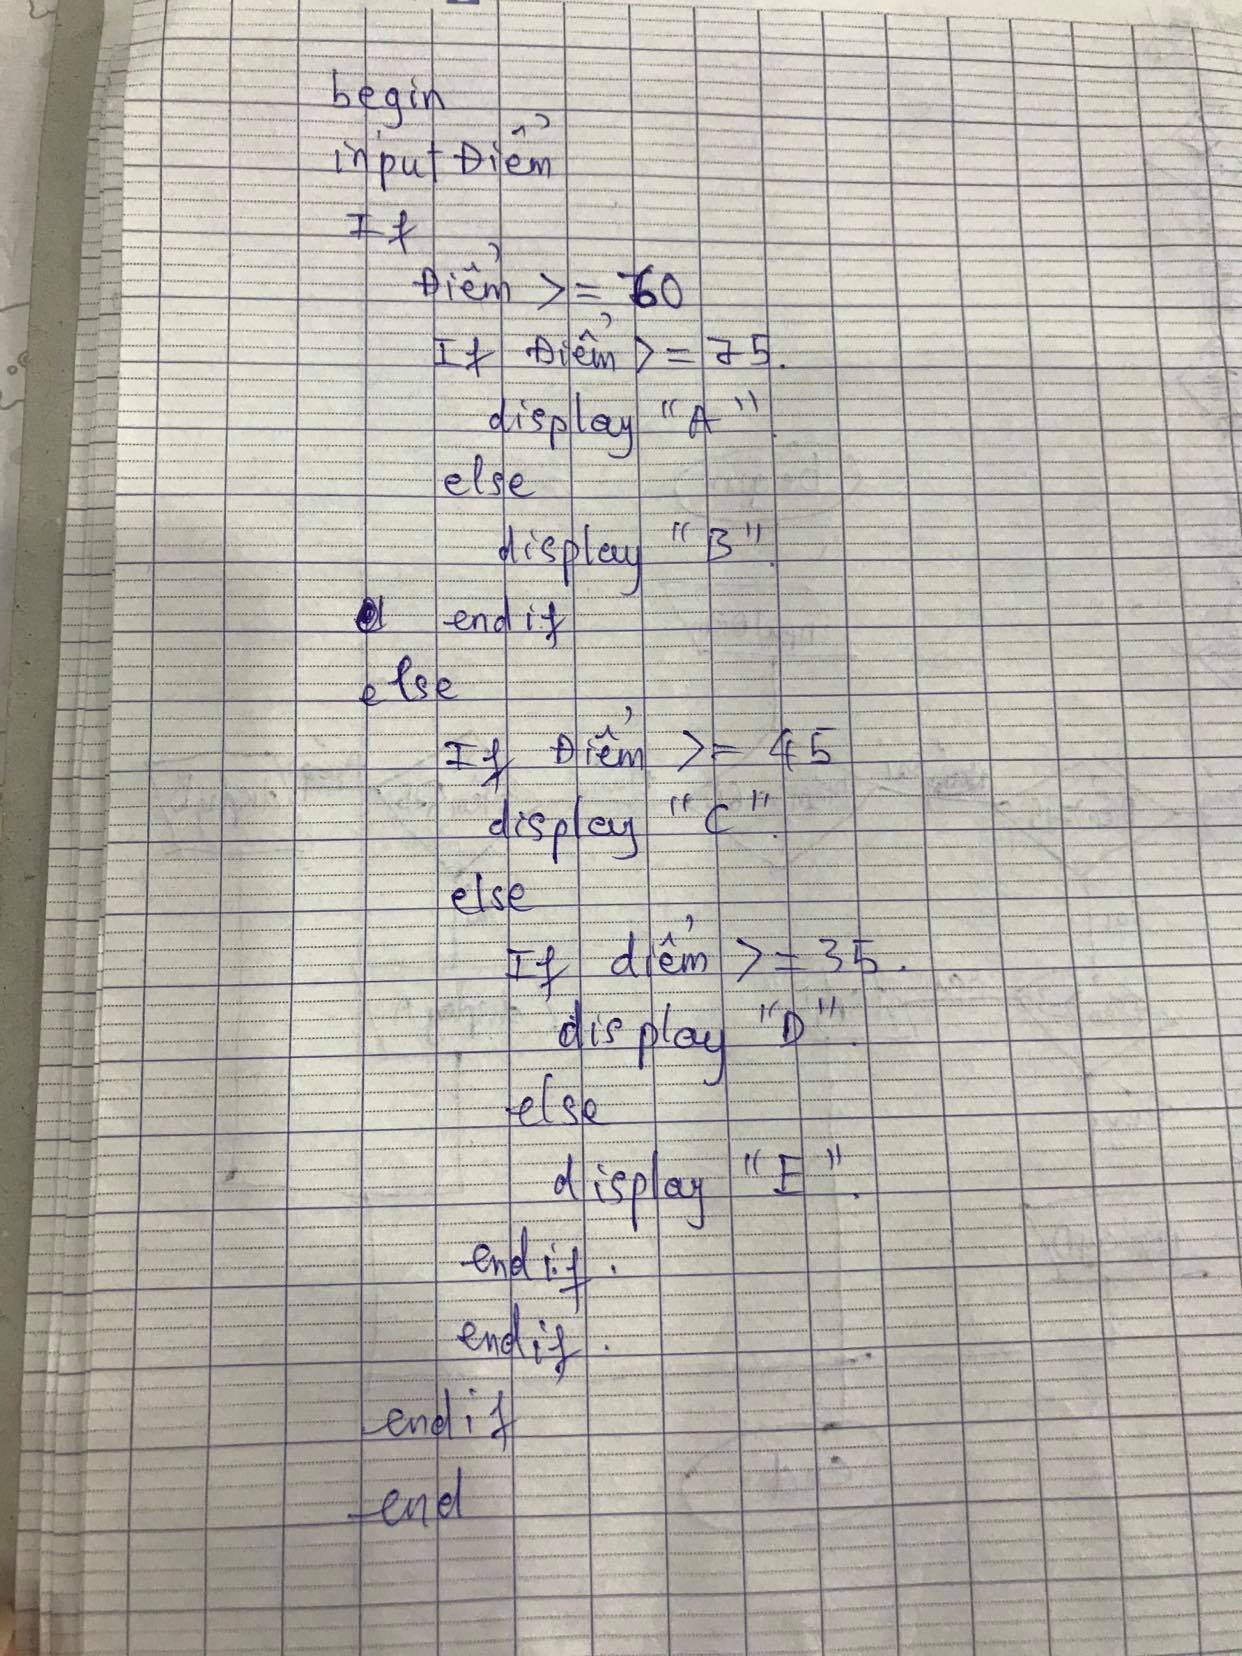 begin
input Điểm
If
Điểm >= 60
If Điểm >= 75.
display "A"
else
display "B"
endif
else
If Điểm >= 45
display "C".
else
If điểm >= 35.
display "D".
else
display "E".
endif.
endif.
endif
end